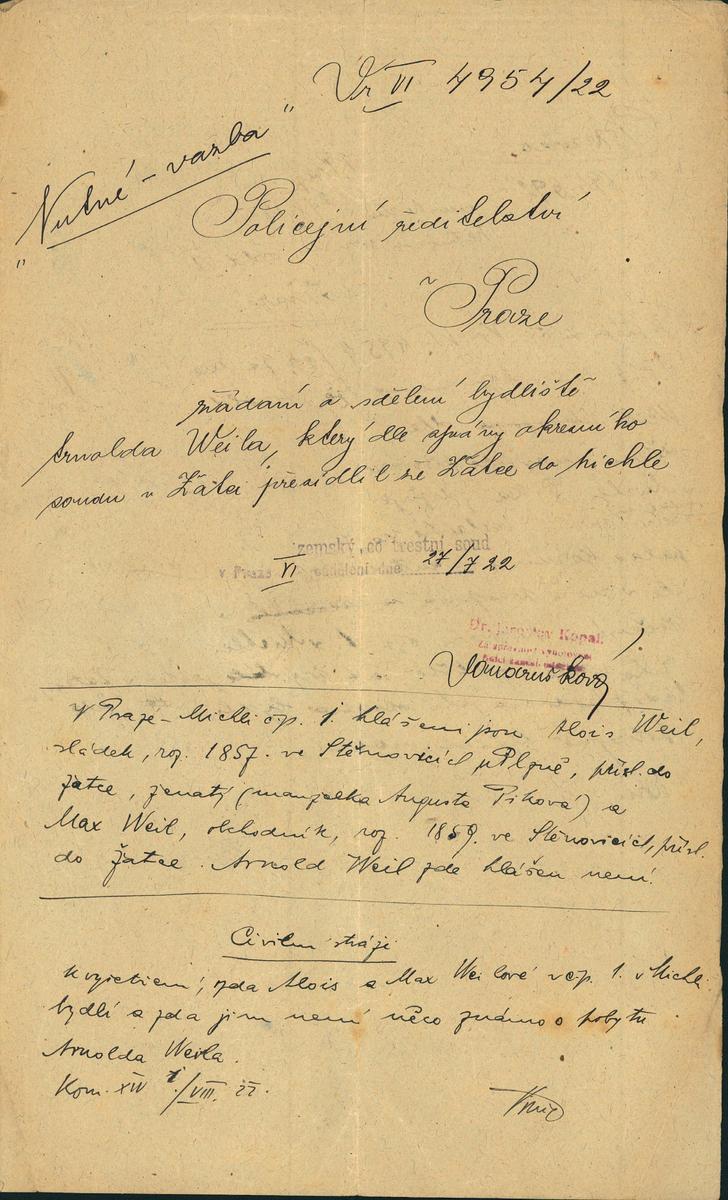 Vr VI 4954/22
"Nutné - vazba"
Policejní ředitelství
v Praze
žádaní o sdělení bydliště
Arnolda Weila, který dle zprávy okresního
soudu v Žatci přesídlil ze Žatce do Michle
zemský co trestní soud
v Praze oddělení VI dne 27/7 22
Dr. Jaroslav Kopal.
Za správnost vyhotovení
V Praze-Michli čp. 1. hlášeni jsou Alois Weil,
sládek, roz. 1857. ve Štěnovicích u Plzně, přísl. do
Žatce, ženatý (manželka Augusta Piková) a
Max Weil, obchodník, roz. 1859. ve Štěnovicích, přísl.
do Žatce. Arnold Weil zde hlášen není.
Civilní stráži
k vyšetření, zda Alois a Max Weilové v čp. 1. v Michli
bydlí a zda jim není něco známo o pobytu
Arnolda Weila.
Kom. XIV 1/VIII. 22.